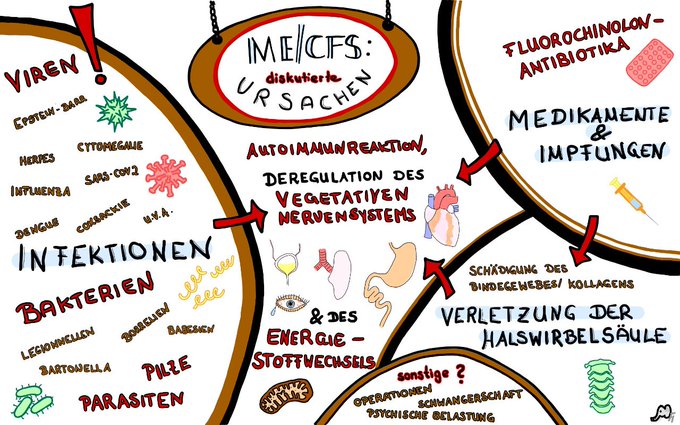 ME/CFS:
diskutierte
URSACHEN
VIREN!
EPSTEIN-BARR
HERPES
CYTOMEGALIE
INFLUENZA
SARS-COV2
DENGUE
COXSACKIE
U.V.A.
INFEKTIONEN
BAKTERIEN
LEGIONELLEN
BORRELIEN
BABESIEN
BARTONELLA
PILZE
PARASITEN
AUTOIMMUNREAKTION,
DEREGULATION DES
VEGETATIVEN
NERVENSYSTEMS
& DES
ENERGIE-
STOFFWECHSELS
FLUOROCHINOLON-
ANTIBIOTIKA
MEDIKAMENTE
&
IMPFUNGEN
SCHÄDIGUNG DES
BINDEGEWEBES/KOLLAGENS
VERLETZUNG DER
HALSWIRBELSÄULE
sonstige?
OPERATIONEN
SCHWANGERSCHAFT
PSYCHISCHE BELASTUNG